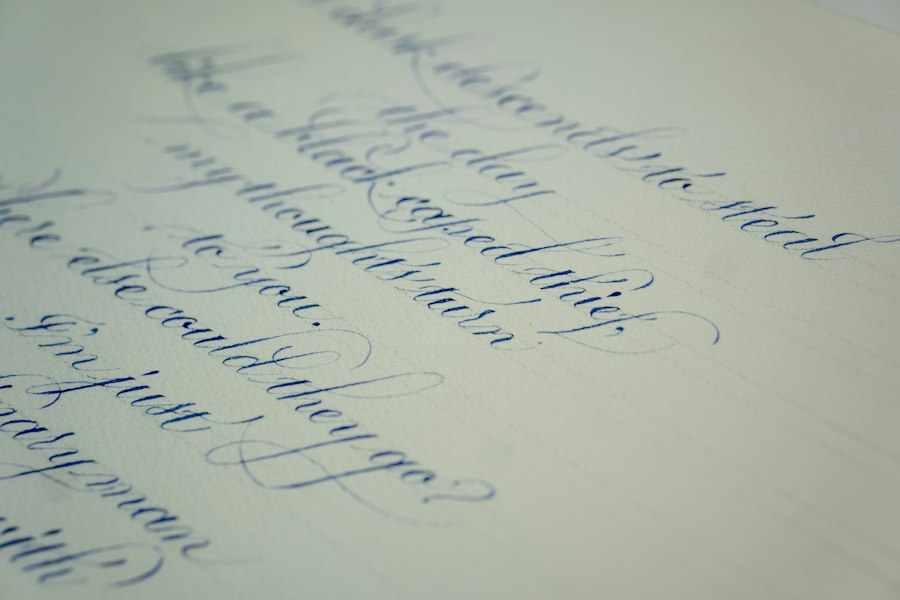 dusk descends to steal
the day
like a black caped thief,
my thoughts turn
to you.
where else could they go?
I'm just
man
with